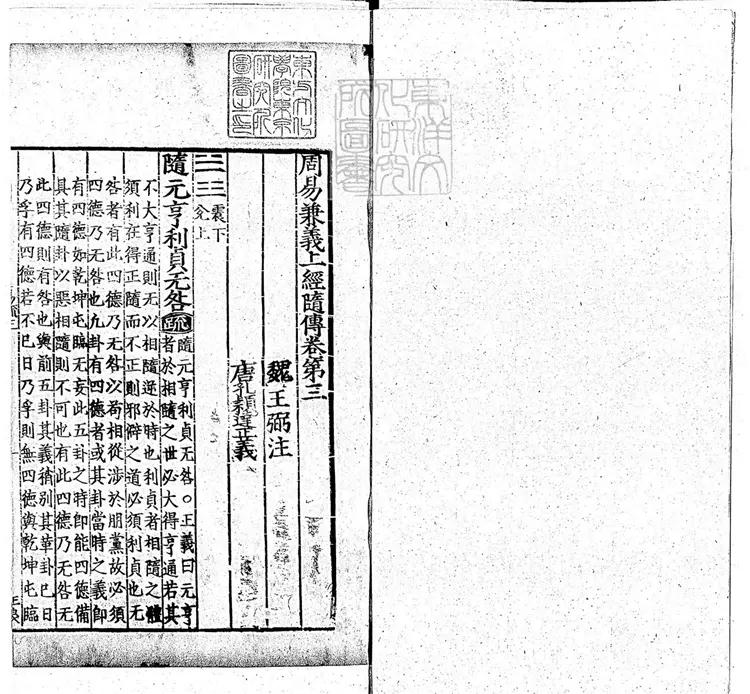 周易兼義上經隨傳卷第三
魏王弼注
唐孔穎達正義
震下
兌上
隨元亨利貞无咎疏隨元亨利貞无咎○正義曰元亨
者於相隨之世必大得亨通若其
不大亨通則无以相隨逆於時也利貞者相隨之體
須利在得正隨而不正則邪僻之道必須利貞也无
咎者有此四德乃无咎以苟相從涉於朋黨故必須
四德乃无咎也凡卦有四德者或其卦當時之義即
有四德如乾坤屯臨无妄此五卦之時即能四德備
具其隨卦以惡相隨則不可也有此四德乃无咎无
此四德則有咎也與前五卦其義稍別其革卦已日
乃孚有四德若不已日乃孚則無四德與乾坤屯臨
東方文化
學院東京
研究所
圖書之印
東洋文
化研究
所圖書